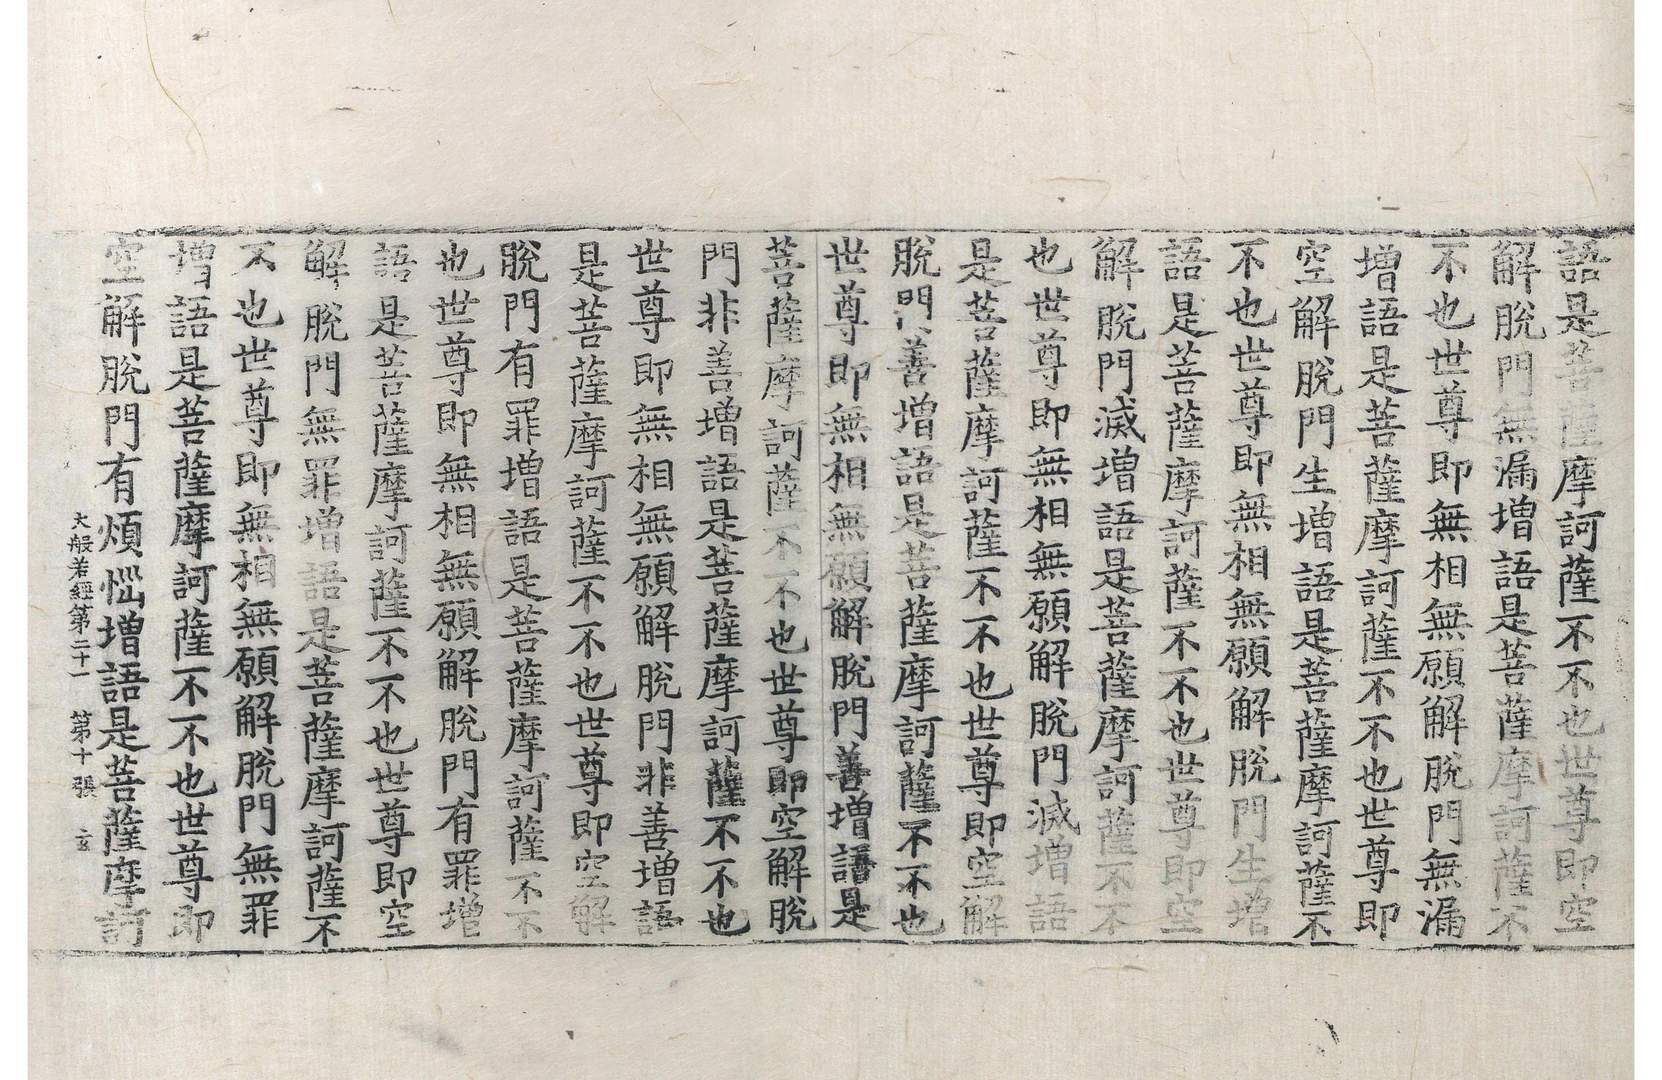 語是菩薩摩訶薩不不也世尊即空
解脫門無漏增語是菩薩摩訶薩不
不也世尊即無相無願解脫門無漏
增語是菩薩摩訶薩不不也世尊即
空解脫門生增語是菩薩摩訶薩不
不也世尊即無相無願解脫門生增
語是菩薩摩訶薩不不也世尊即空
解脫門滅增語是菩薩摩訶薩不不
也世尊即無相無願解脫門滅增語
是菩薩摩訶薩不不也世尊即空解
脫門善增語是菩薩摩訶薩不不也
世尊即無相無願解脫門善增語是
菩薩摩訶薩不不也世尊即空解脫
門非善增語是菩薩摩訶薩不不也
世尊即無相無願解脫門非善增語
是菩薩摩訶薩不不也世尊即空解
脫門有罪增語是菩薩摩訶薩不不
也世尊即無相無願解脫門有罪增
語是菩薩摩訶薩不不也世尊即空
解脫門無罪增語是菩薩摩訶薩不
不也世尊即無相無願解脫門無罪
增語是菩薩摩訶薩不不也世尊即
空解脫門有煩惱增語是菩薩摩訶
大般若經第二十一 第十張 玄